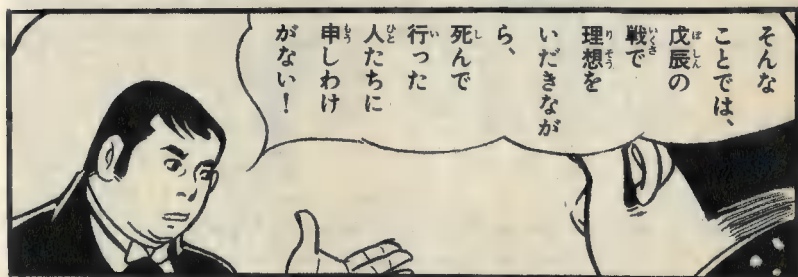 そんな
ことでは、
戊辰の
戦で
理想を
いだきなが
ら、
死んで
行った
人たちに
申しわけ
がない！